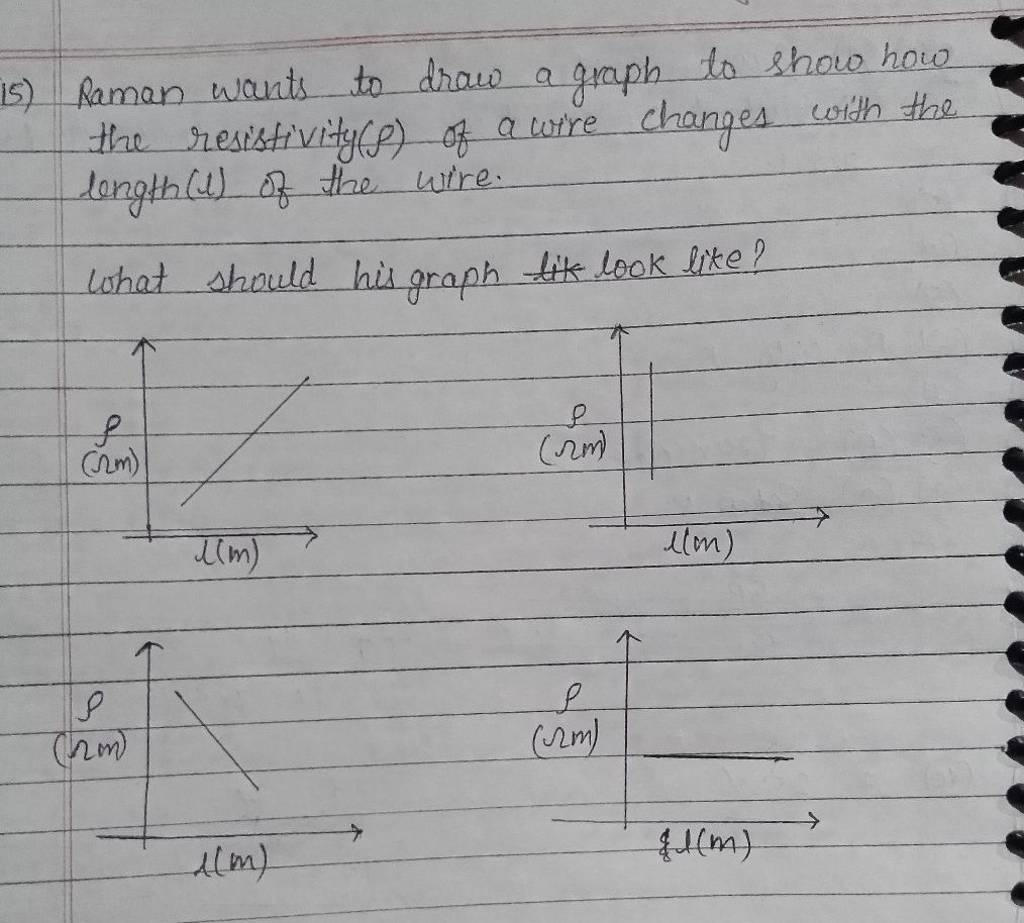 15) Raman wants to draw a graph to show how
the resistivity(ρ) of a wire changes with the
length(l) of the wire.
What should his graph lik look like?
ρ
(Ωm)
l(m)
ρ
(Ωm)
l(m)
ρ
(Ωm)
l(m)
ρ
(Ωm)
l(m)